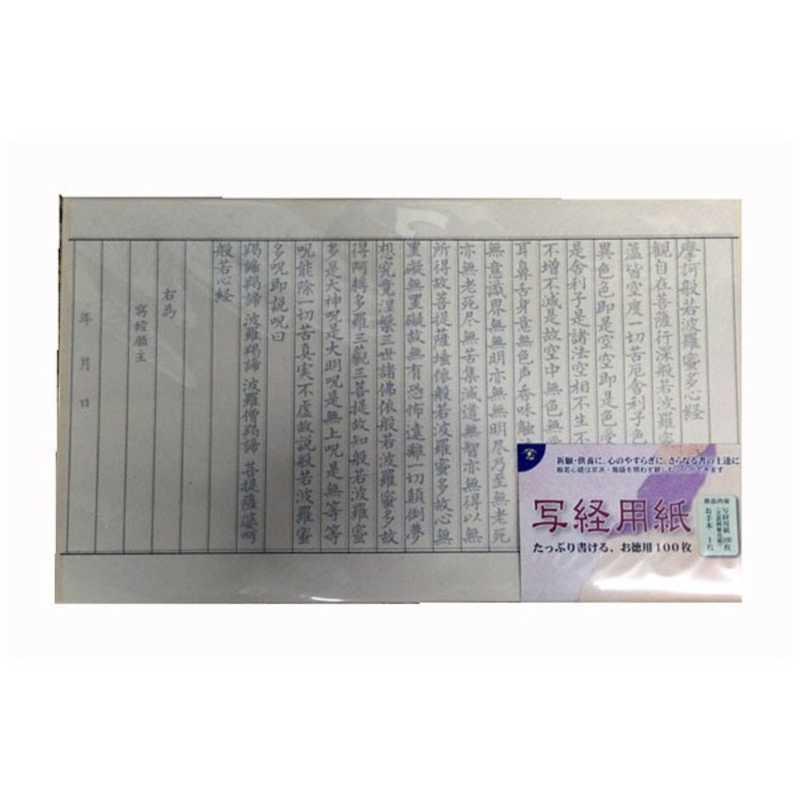 摩訶般若波羅蜜多心経
観自在菩薩行深般若波羅蜜
蘊皆空度一切苦厄舎利子色
異色色即是空空即是色受
是舎利子是諸法空相不生不
不増不減是故空中無色無受
耳鼻舌身意無色声香味触法
無意識界無無明亦無無明尽乃至無老死
亦無老死尽無苦集滅道無智亦無得以無
所得故菩提薩埵依般若波羅蜜多故心無
罣礙無罣礙故無有恐怖遠離一切顛倒夢
想究竟涅槃三世諸佛依般若波羅蜜多故
得阿耨多羅三藐三菩提故知般若波羅蜜
多是大神呪是大明呪是無上呪是無等等
呪能除一切苦真実不虚故説般若波羅蜜
多呪即説呪曰
羯諦羯諦 波羅羯諦 波羅僧羯諦 菩提薩婆訶
般若心経
右為
寫經願主
年 月 日
祈願・供養に、心のやすらぎに、さらなる書の上達に
写経用紙
たっぷり書ける、お徳用100枚
商品内容
写経用紙 100枚
お手本 1枚